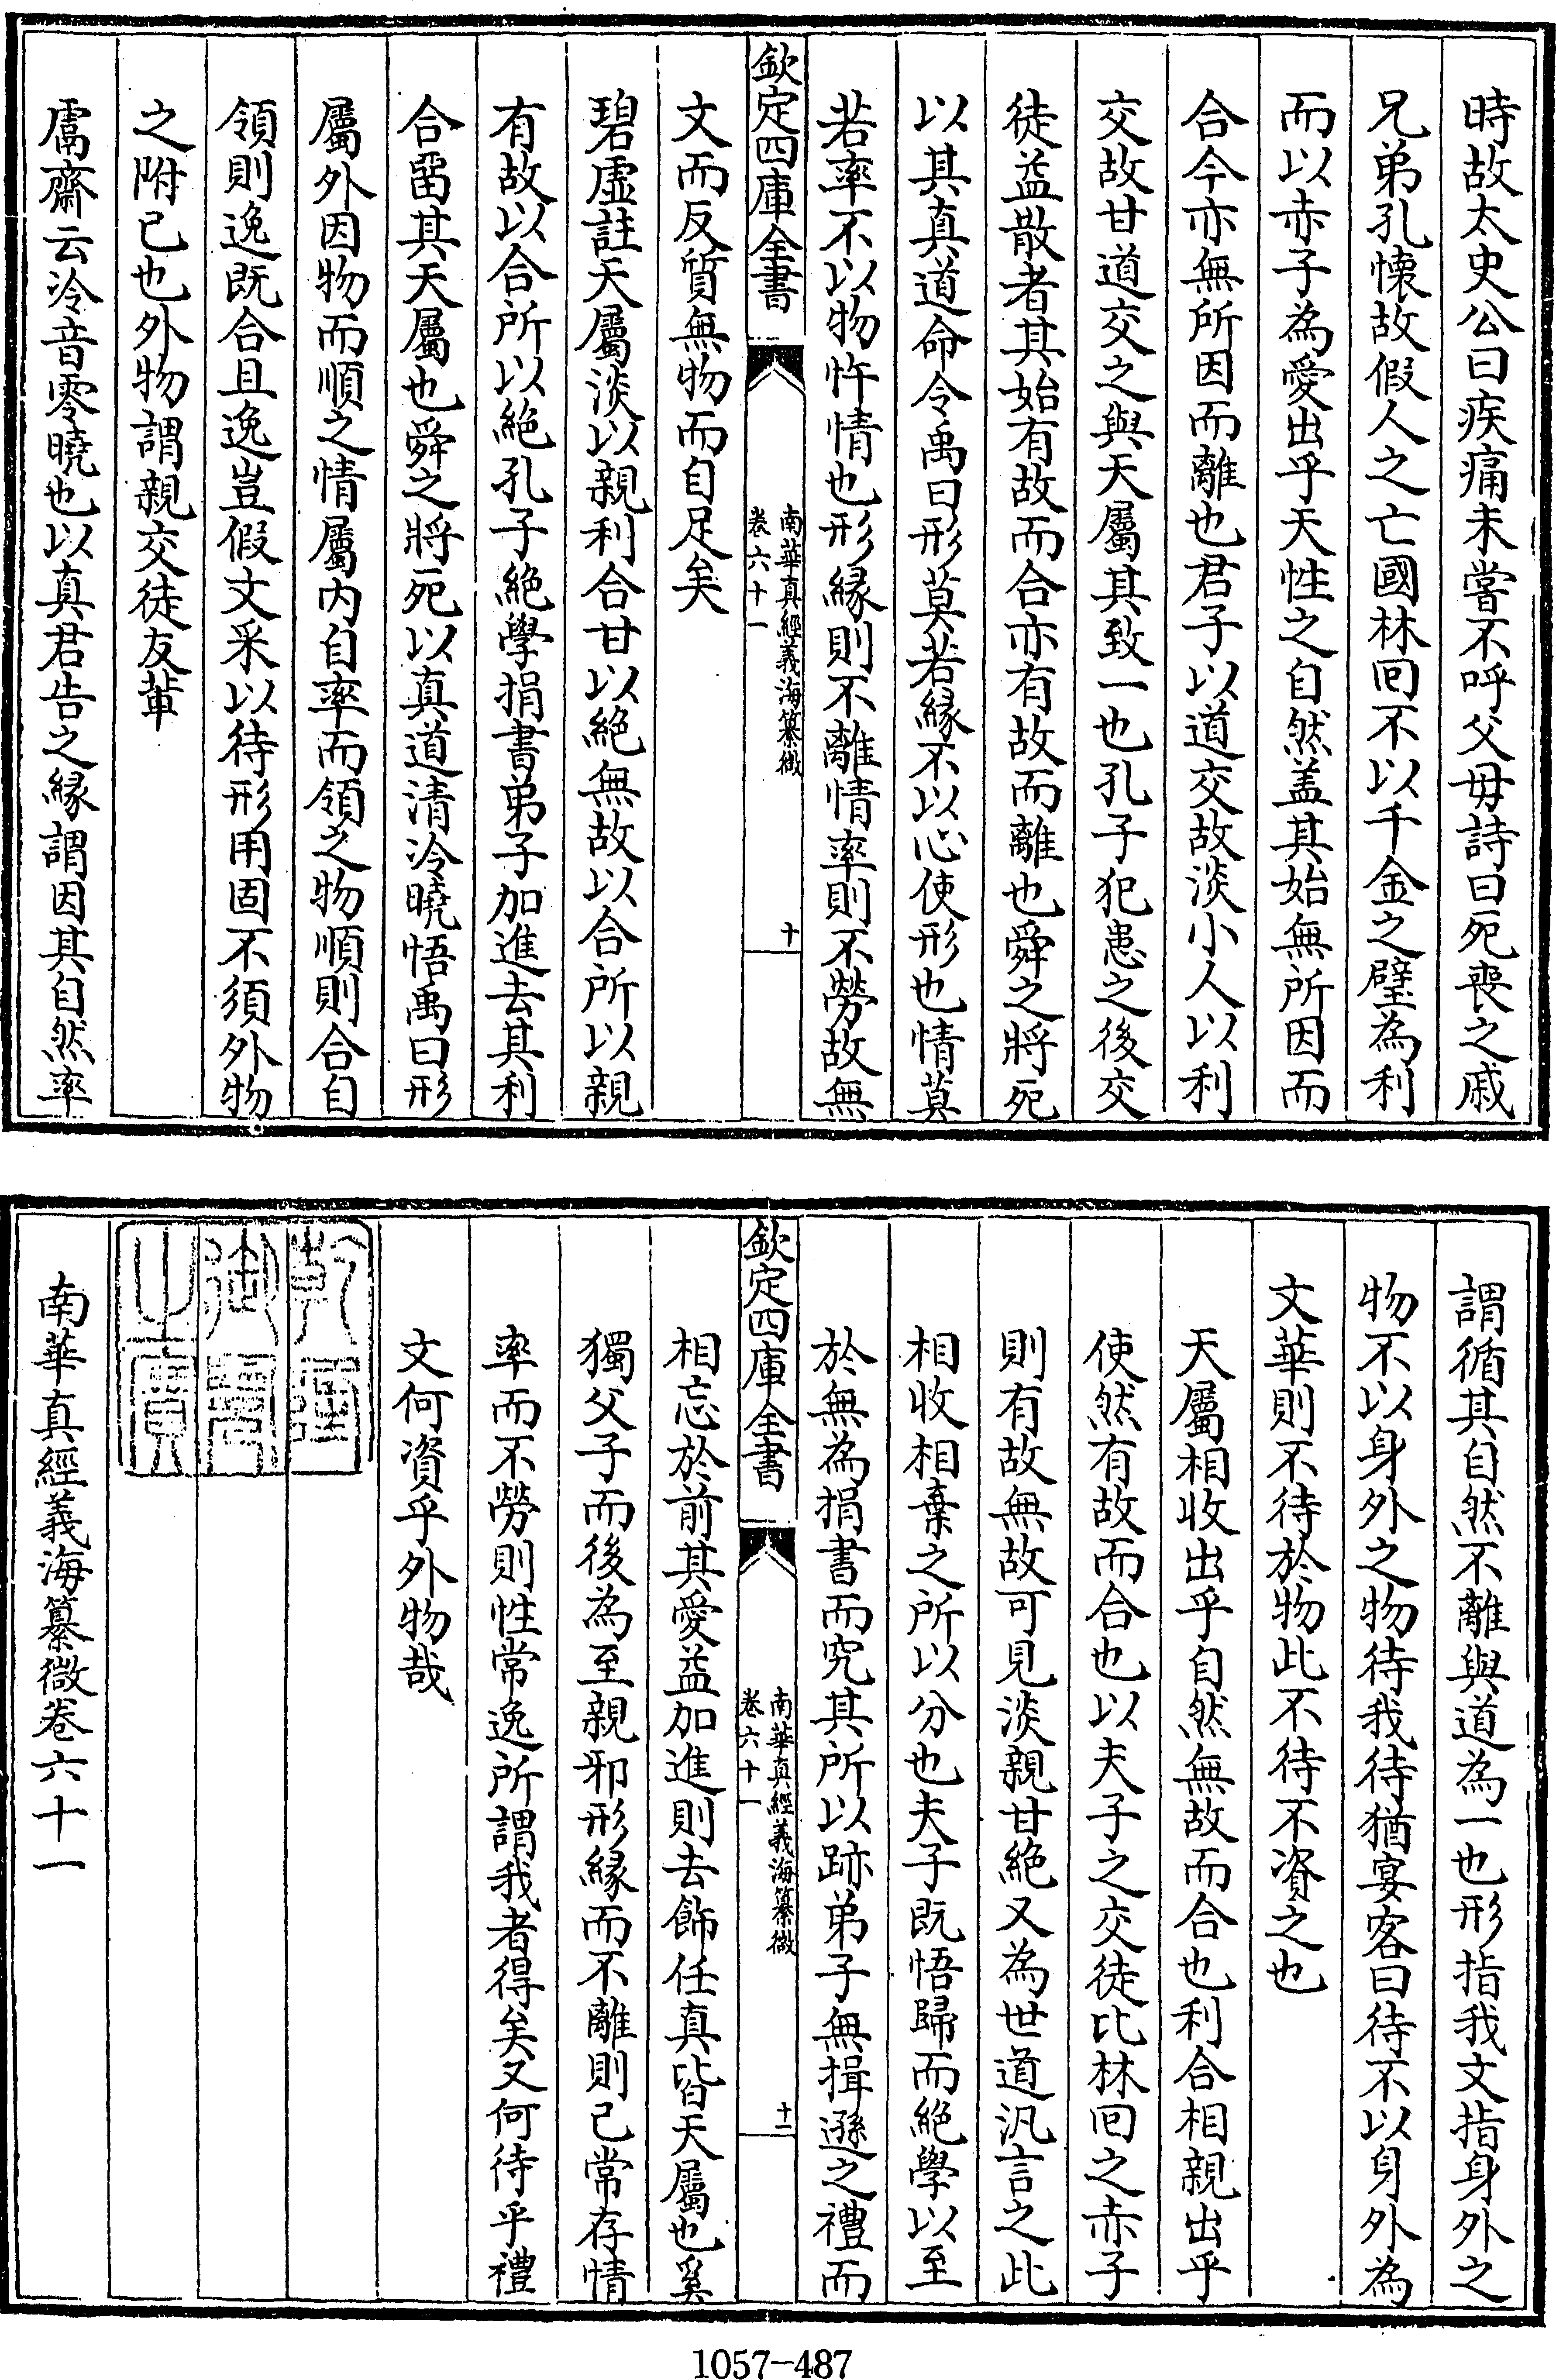 時故太史公曰疾痛未嘗不呼父毋詩曰死喪之戚
兄弟孔懷故假人之亡國林回不以千金之璧為利
而以赤子為愛出乎天性之自然盖其始無所因而
合今亦無所因而離也君子以道交故淡小人以利
交故甘道交之與天屬其致一也孔子犯患之後交
徒益散者其始有故而合亦有故而離也舜之將死
以其真道命令禹曰形莫若緣不以心使形也情莫
若率不以物忤情也形緣則不離情率則不勞故無
欽定四庫全書
南華真經義海纂微
卷六十一
十
文而反質無物而自足矣
碧虛註天屬淡以親利合甘以絶無故以合所以親
有故以合所以絶孔子絶學捐書弟子加進去其利
合留其天屬也舜之將死以真道清泠曉悟禹曰形
屬外因物而順之情屬內自率而領之物順則合自
領則逸既合且逸豈假文采以待形用固不須外物
之附已也外物謂親交徒友軰
鬳齋云泠音零曉也以真君告之緣謂因其自然率
謂循其自然不離與道為一也形指我文指身外之
物不以身外之物待我待猶宴客曰待不以身外為
文華則不待於物此不待不資之也
天屬相收出乎自然無故而合也利合相親出乎
使然有故而合也以夫子之交徒比林回之赤子
則有故無故可見淡親甘絶又為世道汎言之此
相收相棄之所以分也夫子既悟歸而絶學以至
於無為捐書而究其所以跡弟子無揖遜之禮而
欽定四庫全書
南華真經義海纂微
卷六十一
十一
相忘於前其愛益加進則去飾任真皆天屬也奚
獨父子而後為至親邪形緣而不離則已常存情
率而不勞則性常逸所謂我者得矣又何待乎禮
文何資乎外物哉
乾隆御覽之寶
南華真經義海纂微卷六十一
1057-487